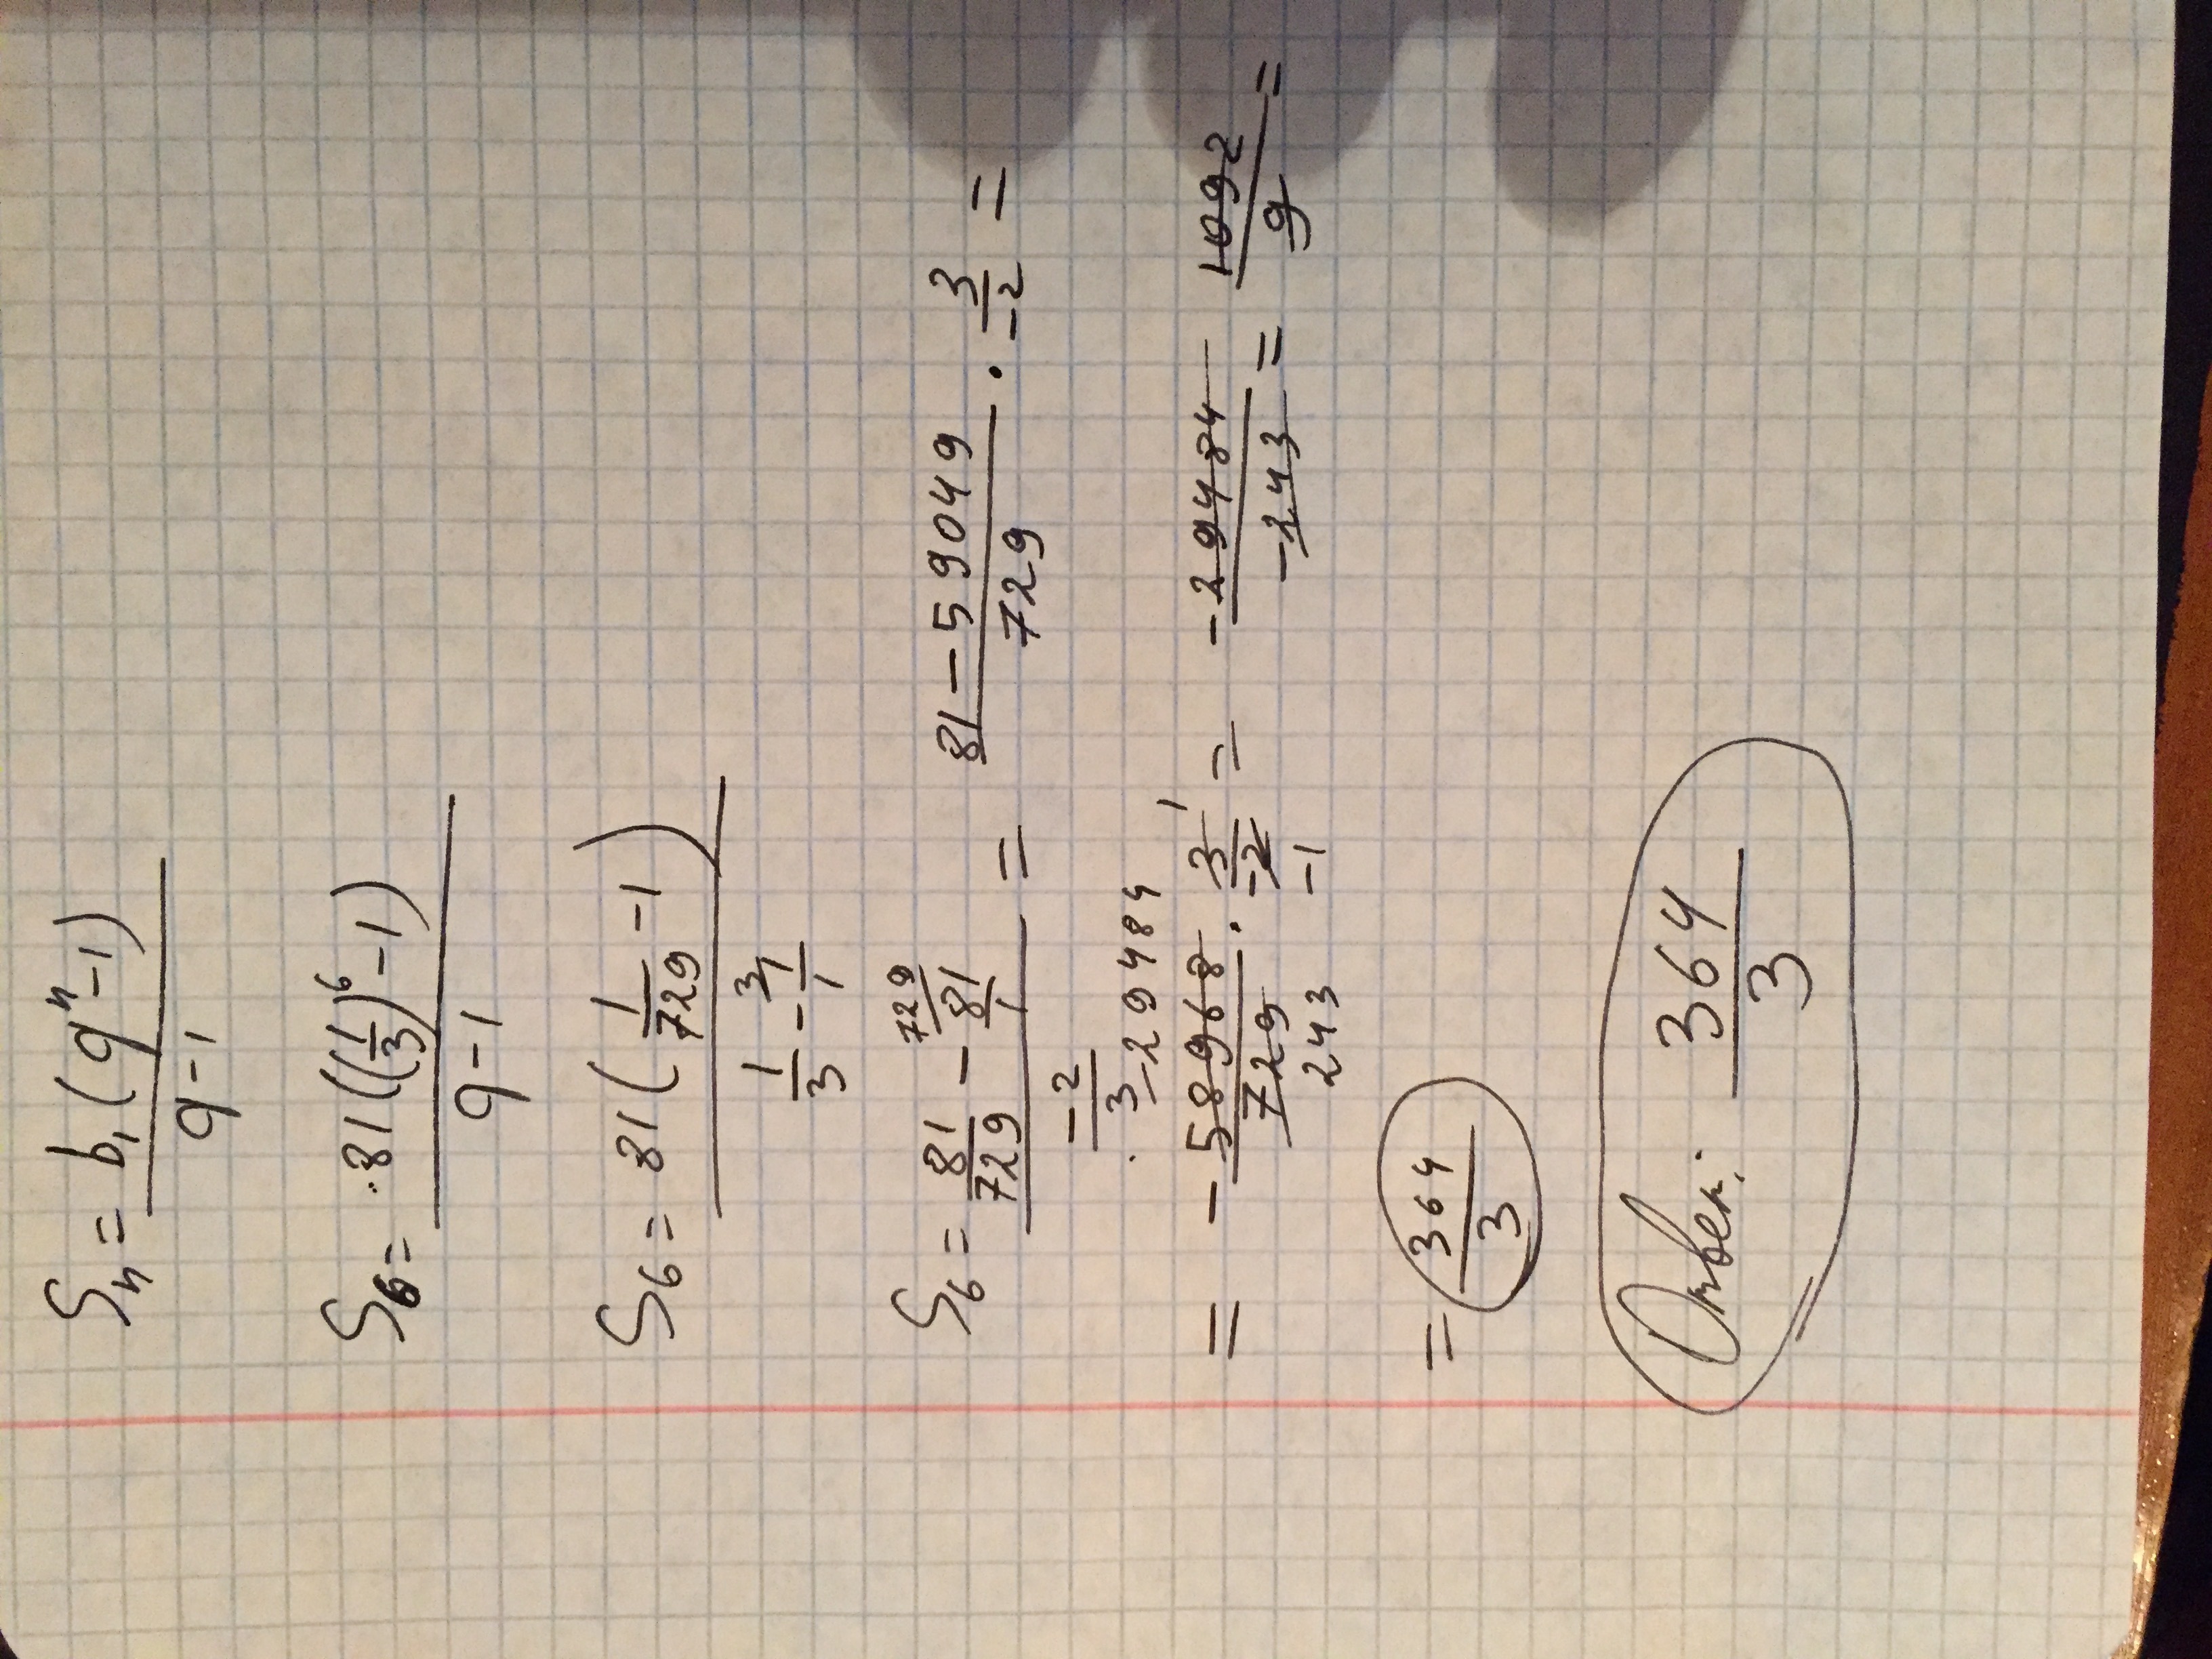 Sₙ = b₁(qⁿ-1) / q-1
S₆ = 81((1/3)⁶-1) / q-1
S₆ = 81(1/729 -1) / 1/3 - 1/1 3
S₆ = 81/729 - 81/1 729 / -2/3 = 81-59049/729 · 3/-2 =
-29484 1
= -58968/729 · 3/-2 = -29484/-243 = 1092/9 =
243 -1
= 364/3
Ответ: 364/3